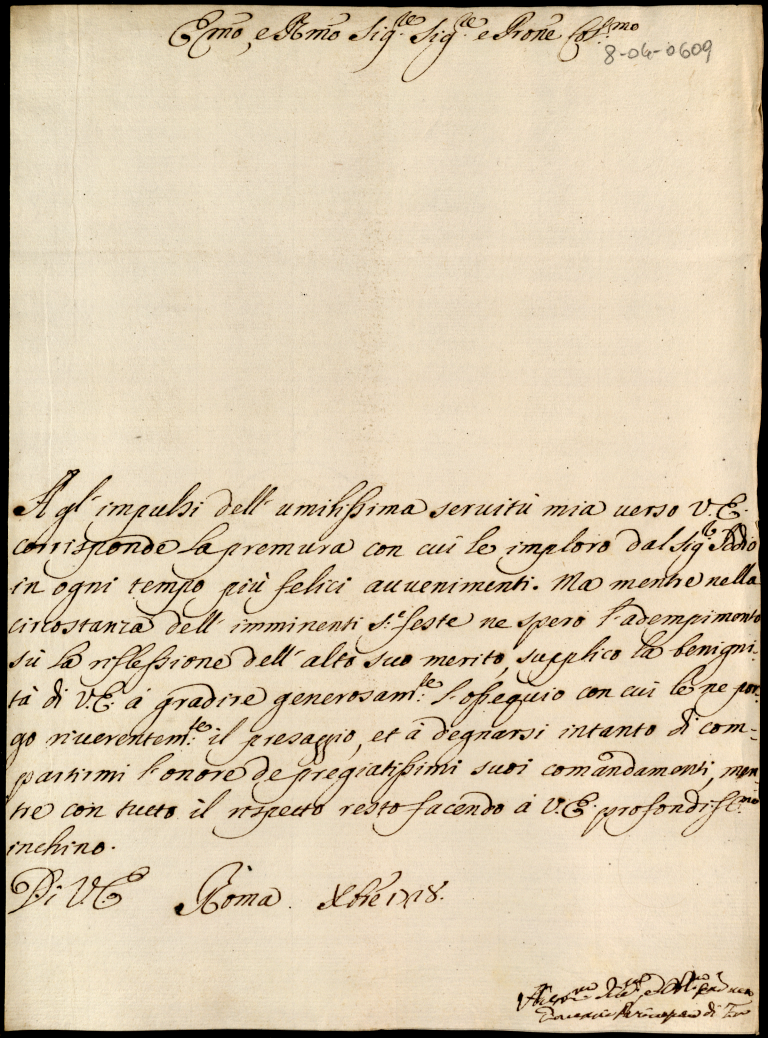 Emo, e Rmo Sigre. Sigre. e Prone Colmo
8-06-0609
Agl' impulsi dell' umilissima seruitù mia uerso V.E.
corrisponde la premura con cui le imploro dal Sigre Iddio
in ogni tempo più felici auuenimenti. Ma mentre nella
circostanza dell' imminenti Ste feste ne spero l'adempimento
sù la riflessione dell' alto suo merito, supplico la benigni-
tà di V.E. á gradire generosamte. l'ossequio con cui le ne por-
go riuerentemte. il presaggio, et á degnarsi intanto di com-
partirmi l'onore de pregiatissimi suoi comandamenti, men-
tre con tutto il rispetto resto facendo á V.E. profondissmo
inchino.
Di V.E. Roma. Xbre 1718.